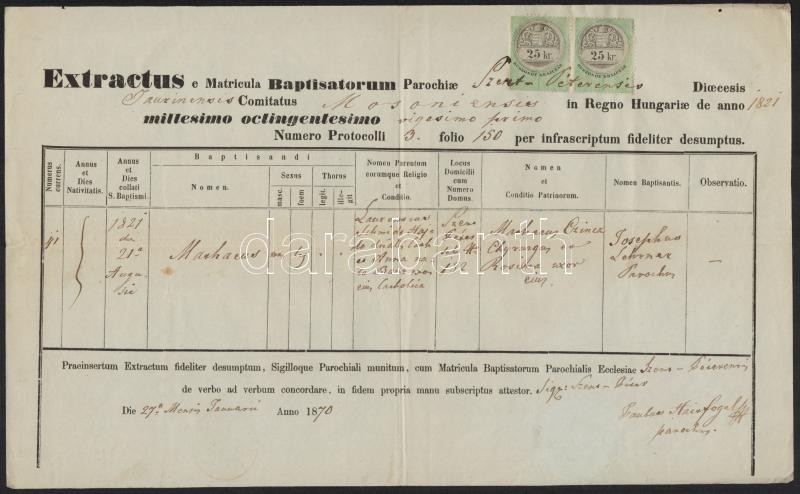 25 kr. 25 kr.
Extractus e Matricula Baptisatorum Parochiæ Szent-Péterensis Diœcesis
Jaurinensis Comitatus Mosoniensis in Regno Hungariæ de anno 1821
millesimo octingentesimo vigesimo primo
Numero Protocolli 3. folio 150 per infrascriptum fideliter desumptus.
Numerus currens.
Annus et Dies Nativitatis.
Annus et Dies collati S. Baptismi.
Baptisandi
Nomen.
Sexus
masc.
foem
Thorus
legit.
ille-git
Nomen Parentum eorumque Religio et Conditio.
Locus Domicilii cum Numero Domus.
Nomen et Conditio Patrinorum.
Nomen Baptisantis.
Observatio.
41
1821
die
21a
Augu-
sti
Mathaeus
Laurentius
Schmidt
et Anna
Catholica
Mathaeus
Chyrurgus et
Rosina uxor
ejus.
Josephus
Parochus
—
darabanth
Praeinsertum Extractum fideliter desumptum, Sigilloque Parochiali munitum, cum Matricula Baptisatorum Parochialis Ecclesiae Szent-Péterensis
de verbo ad verbum concordare, in fidem propria manu subscriptus attestor. Sign: Szent-Péter
Die 27a Mensis Januarii Anno 1870
Paulus Hairfogel
parochus.